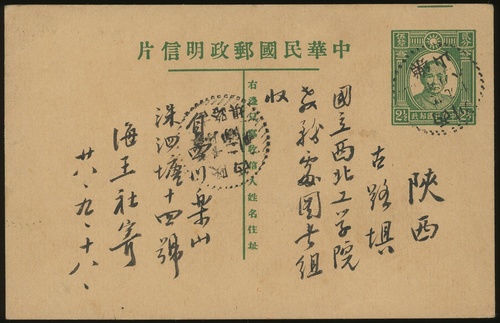 中華民國郵政明信片
陝西
古路壩
國立西北工學院
教務處圖書組
收
右邊只寫收信人姓名住址
自四川樂山
深泗壋十四號
海王社寄
廿八、九、十八、
2½
2½